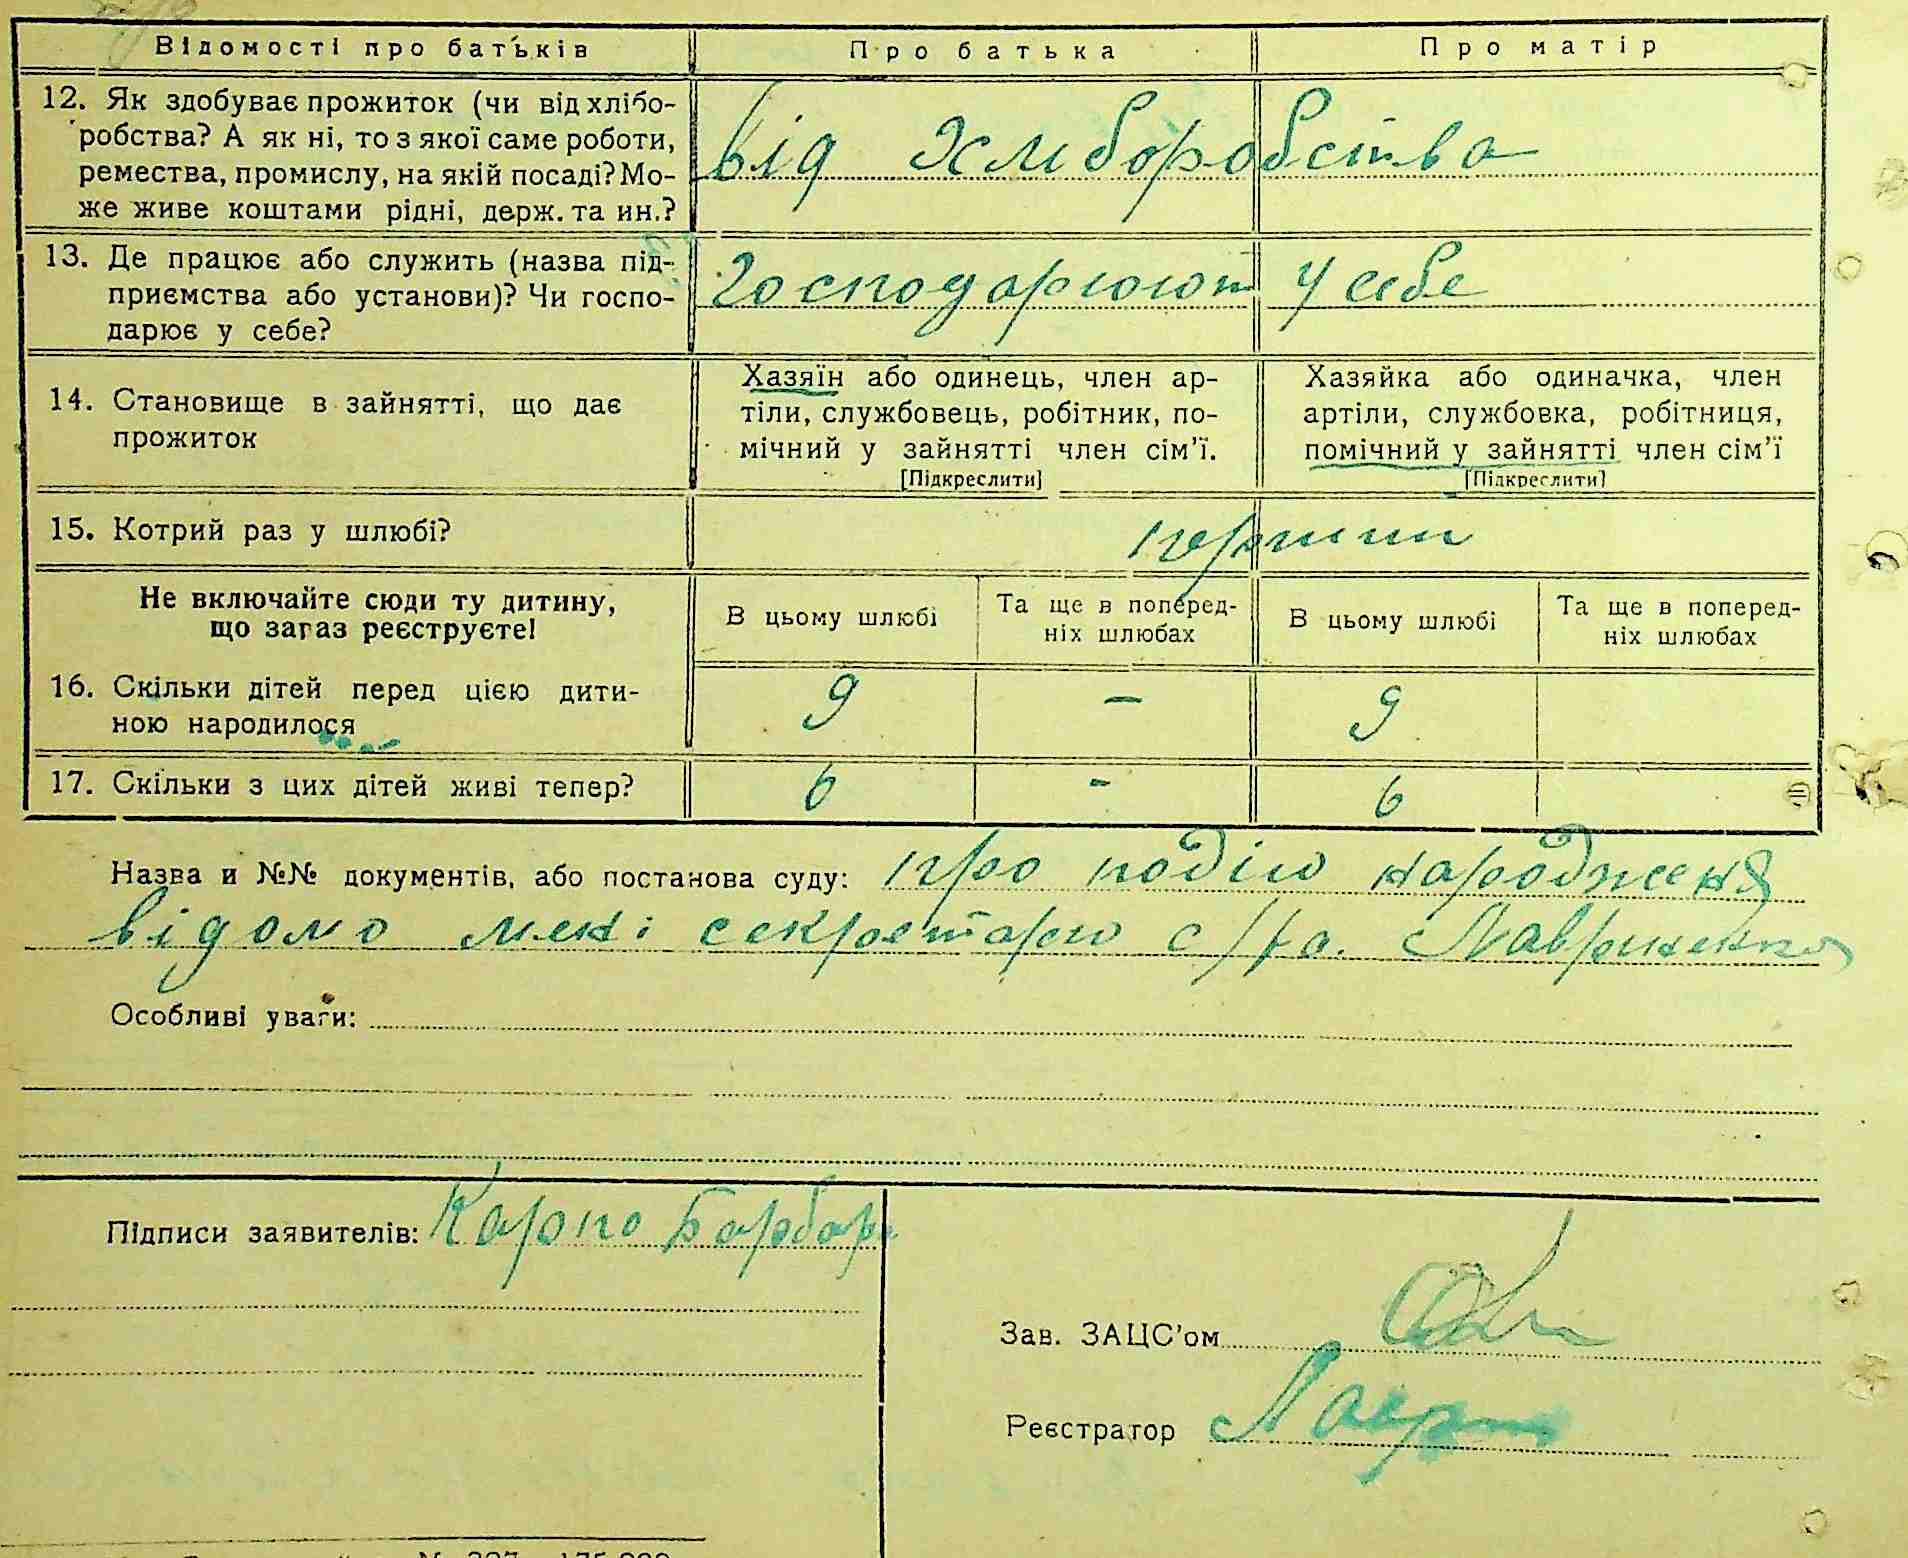 Відомості про батьків
Про батька
Про матір
12. Як здобуває прожиток (чи від хлібо-
робства? А як ні, то з якої саме роботи,
ремества, промислу, на якій посаді? Мо-
же живе коштами рідні, держ. та ин.?
від хліборобства
13. Де працює або служить (назва під-
приємства або установи)? Чи госпо-
дарює у себе?
Господарюют у себе
14. Становище в зайнятті, що дає
прожиток
Хазяїн або одинець, член ар-
тіли, службовець, робітник, по-
мічний у зайнятті член сім'ї.
[Підкреслити]
Хазяйка або одиначка, член
артіли, службовка, робітниця,
помічний у зайнятті член сім'ї
[Підкреслити]
15. Котрий раз у шлюбі?
Не включайте сюди ту дитину,
що зараз реєструєте!
В цьому шлюбі
Та ще в поперед-
ніх шлюбах
В цьому шлюбі
Та ще в поперед-
ніх шлюбах
16. Скільки дітей перед цією дити-
ною народилося
9 - 9
17. Скільки з цих дітей живі тепер?
6 - 6
Назва и №№ документів, або постанова суду: про подію народженя
відомо мені секретарю с/ра. Лавриненко
Особливі уваги:
Підписи заявителів: Карпо Барбар
Зав. ЗАЦС'ом
Реєстратор Лавр